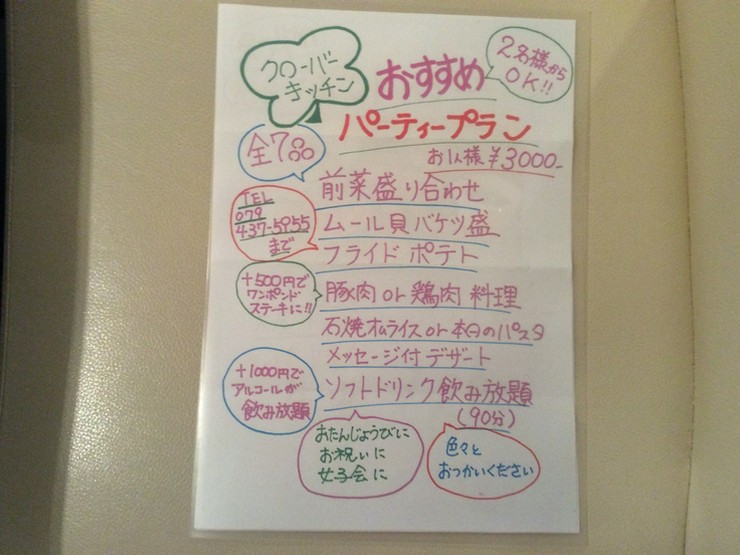 クローバー
キッチン
おすすめ
2名様から
OK!!
パーティープラン
お1人様 ¥3000-
全7品
前菜盛り合わせ
TEL
079
437-5955
まで
ムール貝バケツ盛
フライドポテト
+500円で
ワンポンド
ステーキに!!
豚肉or鶏肉料理
石焼オムライスor本日のパスタ
メッセージ付デザート
+1000円で
アルコールが
飲み放題
ソフトドリンク飲み放題
(90分)
おたんじょうびに
お祝いに
女子会に
色々と
おつかいください